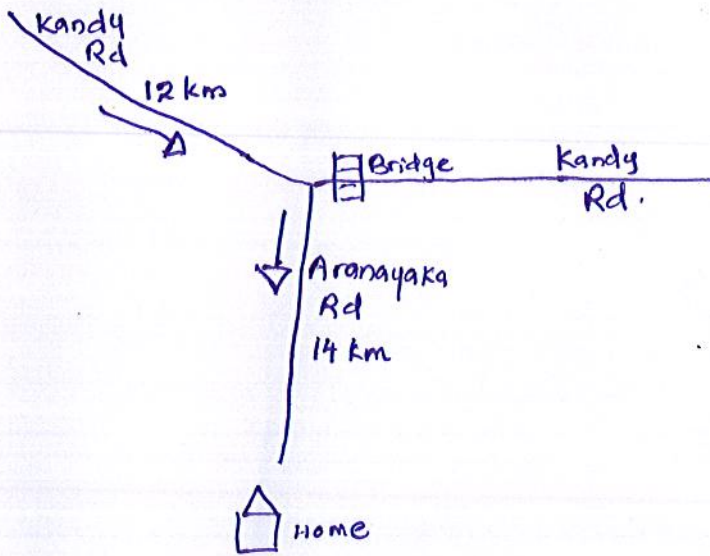 Kandy
Rd
12 km
Bridge
Kandy
Rd.
Aranayaka
Rd
14 km
Home